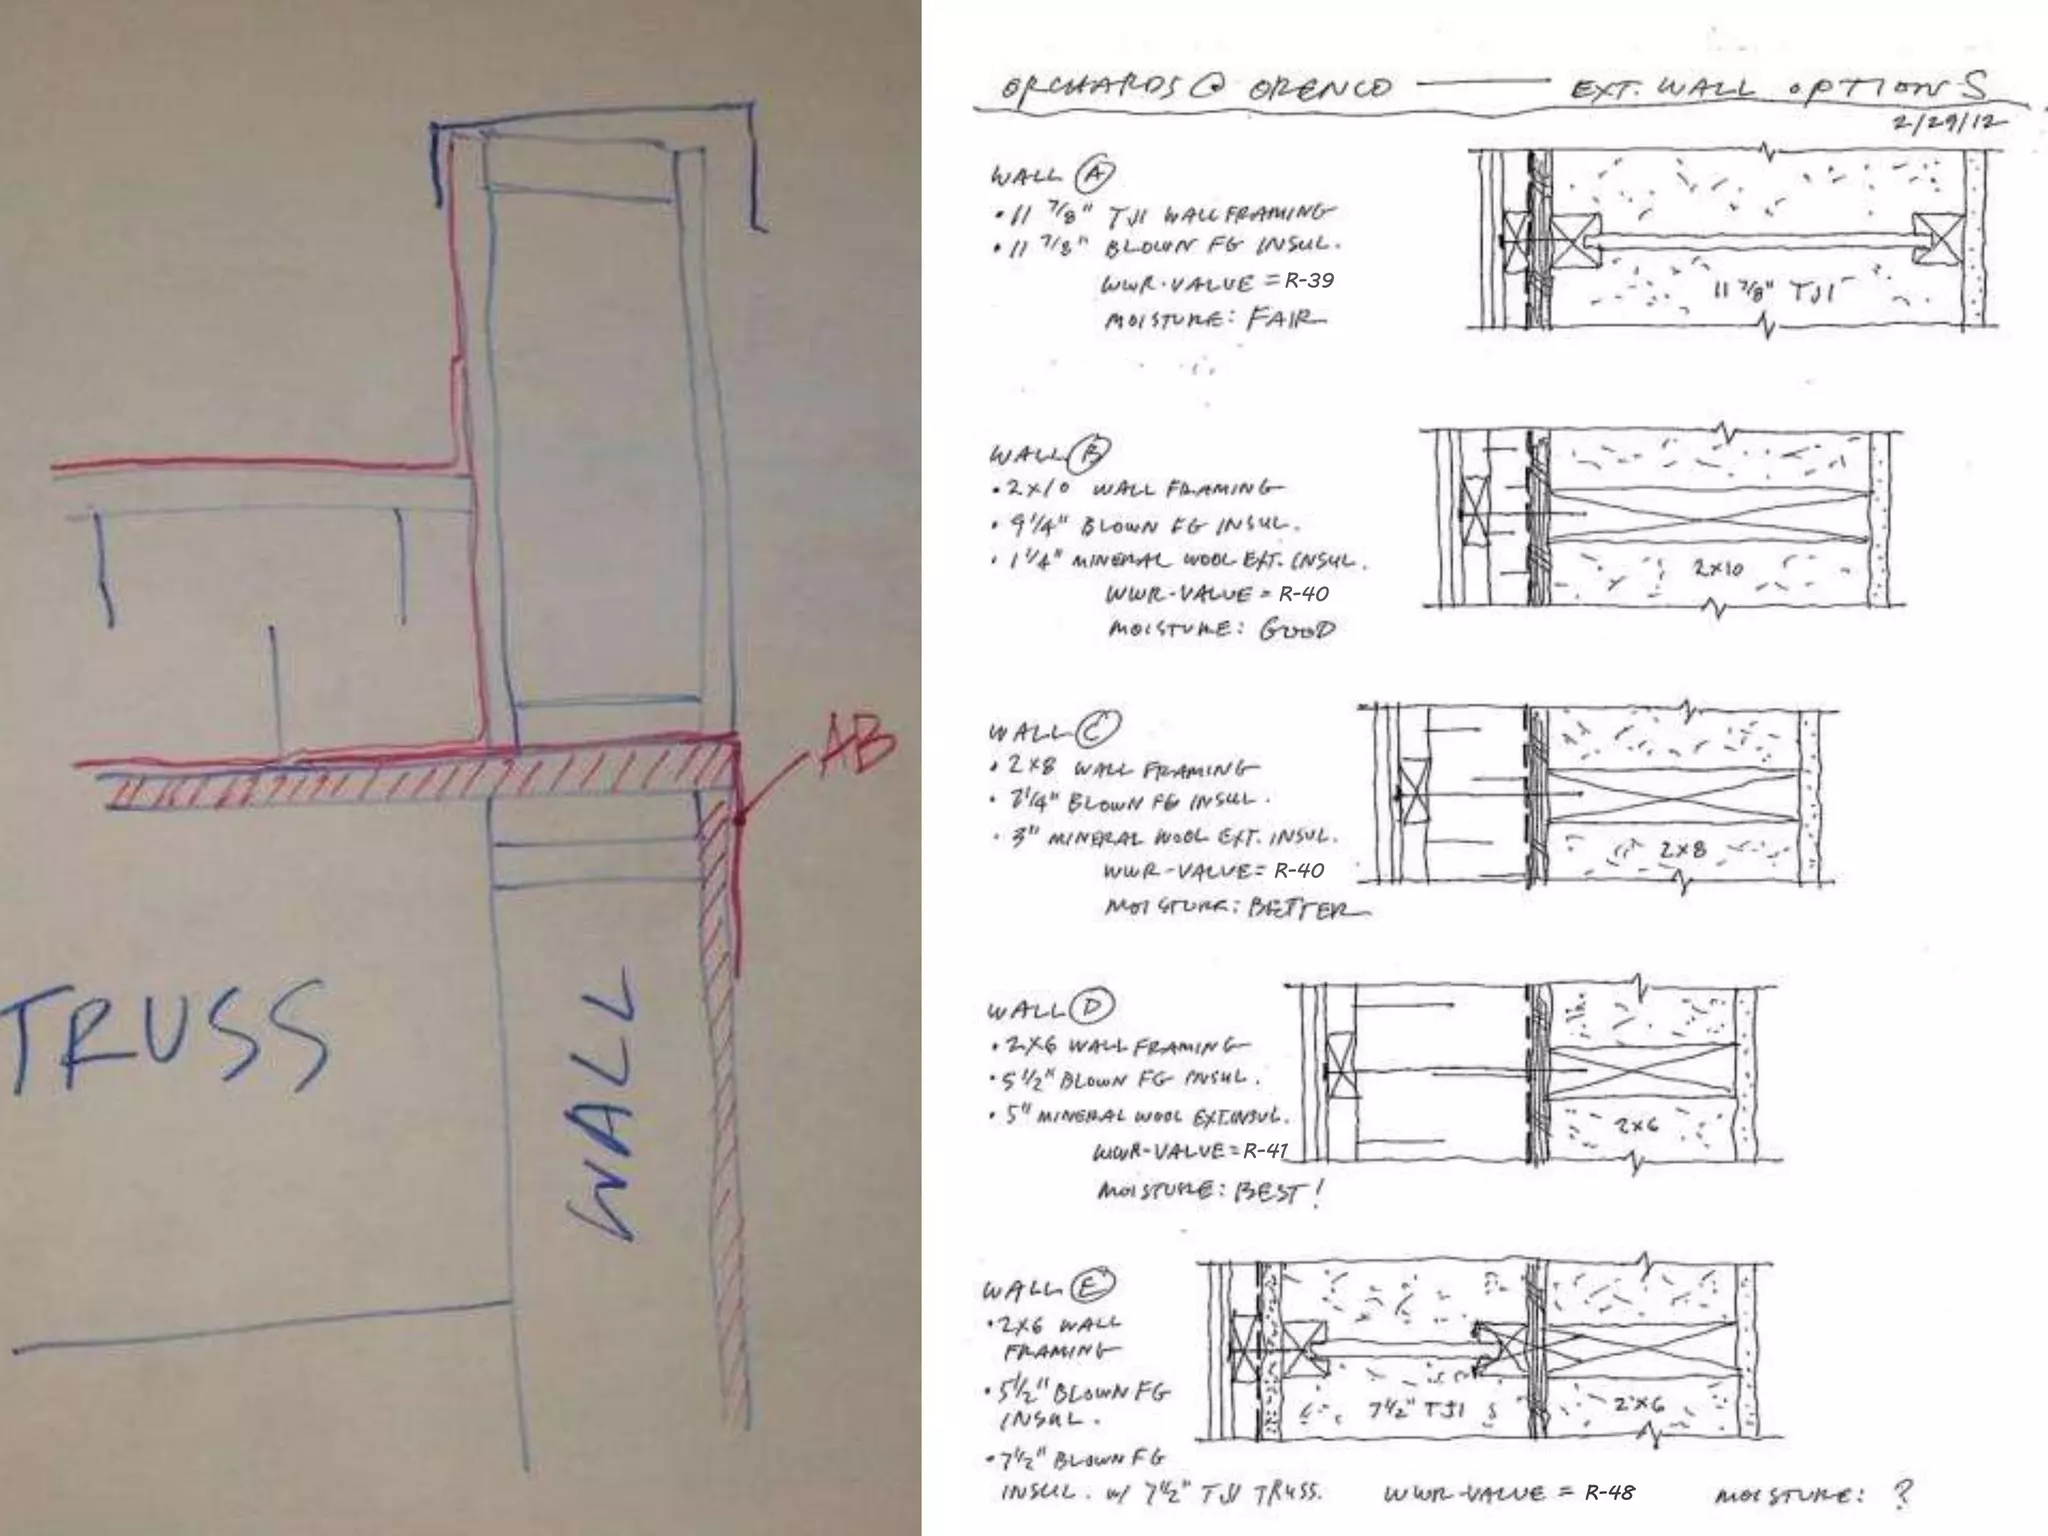 AB
TRUSS
WALL
ORCHARDS @ ORENCO — EXT. WALL OPTIONS
2/29/12
WALL A
• 11 7/8" TJI WALL FRAMING
• 11 7/8" BLOWN FG INSUL.
WWR-VALUE = R-39
MOISTURE: FAIR
11 7/8" TJI
WALL B
• 2x10 WALL FRAMING
• 9 1/4" BLOWN FG INSUL.
• 1 1/4" MINERAL WOOL EXT. INSUL.
WWR-VALUE = R-40
MOISTURE: GOOD
2x10
WALL C
• 2x8 WALL FRAMING
• 7 1/4" BLOWN FG INSUL.
• 3" MINERAL WOOL EXT. INSUL.
WWR-VALUE = R-40
MOISTURE: BETTER
2x8
WALL D
• 2x6 WALL FRAMING
• 5 1/2" BLOWN FG INSUL.
• 5" MINERAL WOOL EXT. INSUL.
WWR-VALUE = R-41
MOISTURE: BEST!
2x6
WALL E
• 2x6 WALL
FRAMING
• 5 1/2" BLOWN FG
INSUL.
• 7 1/2" BLOWN FG
INSUL. w/ 7 1/2" TJI TRUSS.
7 1/2" TJI
2x6
WWR-VALUE = R-48
MOISTURE: ?